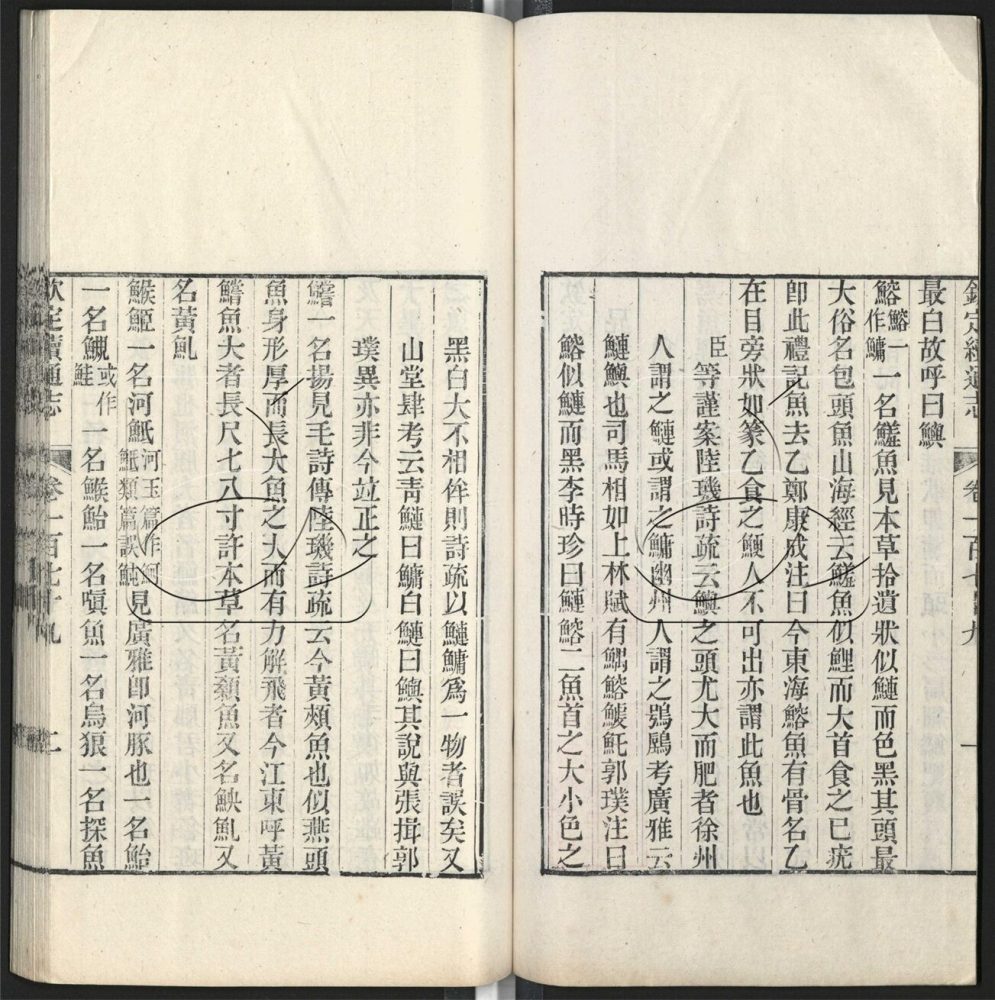 欽定續通志 卷一百七十九 一
最白故呼曰鱮
鰫鱅一作鱅一名鱃魚見本草拾遺狀似鰱而色黑其頭最
大俗名包頭魚山海經云鱃魚似鯉而大首食之已疣
卽此禮記魚去乙鄭康成注曰今東海鰫魚有骨名乙
在目旁狀如篆乙食之鯁人不可出亦謂此魚也
臣等謹案陸璣詩疏云鱮之頭尤大而肥者徐州
人謂之鰱或謂之鱅幽州人謂之鴞鷉考廣雅云
鰱鱮也司馬相如上林賦有鰅鰫鯪魠郭璞注曰
鰫似鰱而黑李時珍曰鰱鰫二魚首之大小色之
黑白大不相侔則詩疏以鰱鱅爲一物者誤矣又
山堂肆考云靑鰱曰鱅白鰱曰鱮其說與張揖郭
璞異亦非今竝正之
鱨一名揚見毛詩傳陸璣詩疏云今黃頰魚也似燕頭
魚身形厚而長大魚之大而有力解飛者今江東呼黃
鱨魚大者長尺七八寸許本草名黃顙魚又名鉠魟又
名黃魟
鯸䱌一名河魠河玉篇作魺魠類篇誤魨見廣雅卽河豚也一名鮐
一名鯢或作鮭一名鯸鮐一名嗔魚一名烏狼一名探魚
欽定續通志 卷一百七十九 二